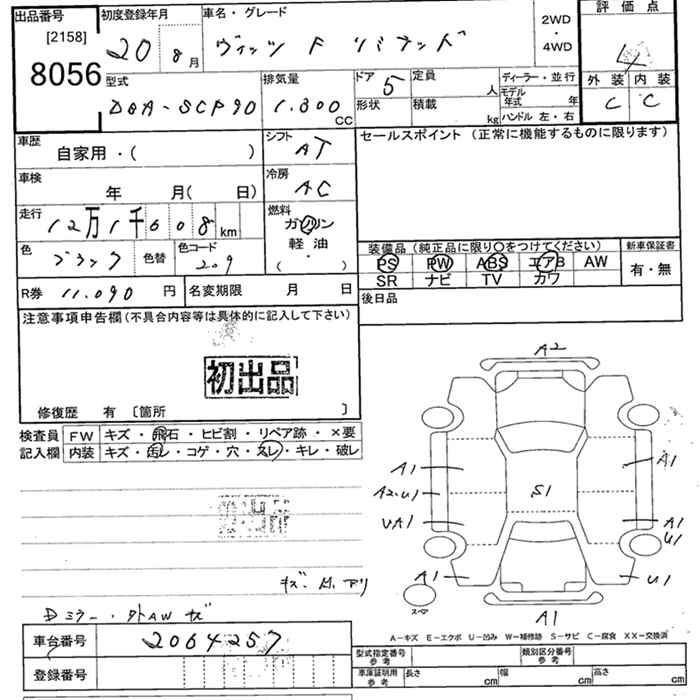 出品番号
[2158]
8056
初度登録年月
20 8月
車名・グレード
ヴィッツ F リミテッド
2WD
・
4WD
評価点
4
外装 内装
C C
型式
DBA-SCP90
排気量
1.300 CC
ドア 5
形状
定員 人
積載 kg
ディーラー・並行
モデル年式 年
ハンドル 左・右
車歴
自家用・( )
シフト
AT
セールスポイント (正常に機能するものに限ります)
車検
年 月( 日)
冷房
AC
走行
12万1千608km
燃料
ガソリン
軽油
( ・ )
色
ブラック
色替
色コード
209
装備品 (純正品に限り○をつけてください)
PS PW ABS エアB AW
SR ナビ TV カワ
新車保証書
有・無
R券 11.090 円
名変期限 月 日
後日品
注意事項申告欄(不具合内容等は具体的に記入して下さい)
初出品
修復歴 有 〔箇所 〕
検査員
記入欄
FW キズ・飛石・ヒビ割・リペア跡・×要
内装 キズ・汚レ・コゲ・穴・スレ・キレ・破レ
A2
A1 A1
A2・U1 S1
UA1 A1
U1
A1 U1
スペア
A1
Dミラー・外AWキズ
A-キズ E-エクボ U-凹み W-補修跡 S-サビ C-腐食 XX-交換済
車台番号 2064257
登録番号
型式指定番号
参考
類別区分番号
参考
車庫証明用
参考
長さ cm 幅 cm 高さ cm